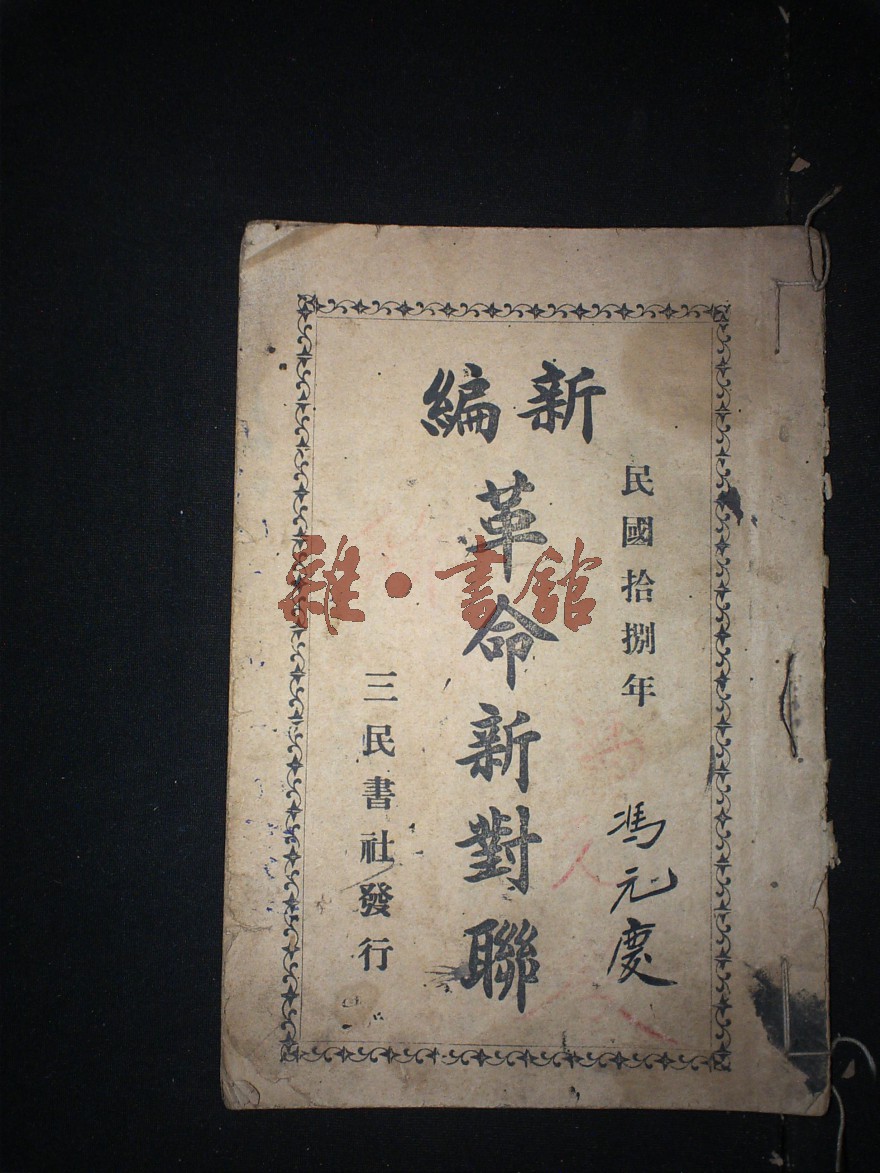 新編
民國拾捌年
馮元慶
革命新對聯
三民書社發行
雜·書館